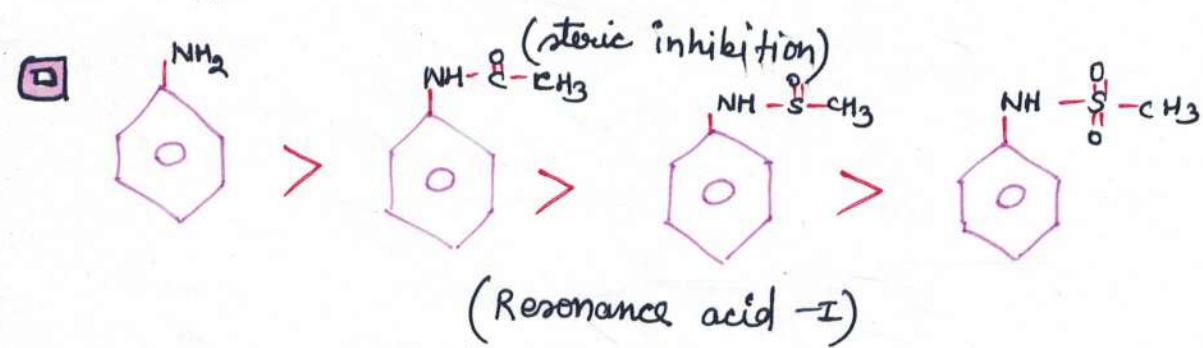 (steric inhibition)
NH2
NH-C-CH3
O
NH-S-CH3
O
NH-S-CH3
O
O
> > >
(Resonance acid -I)